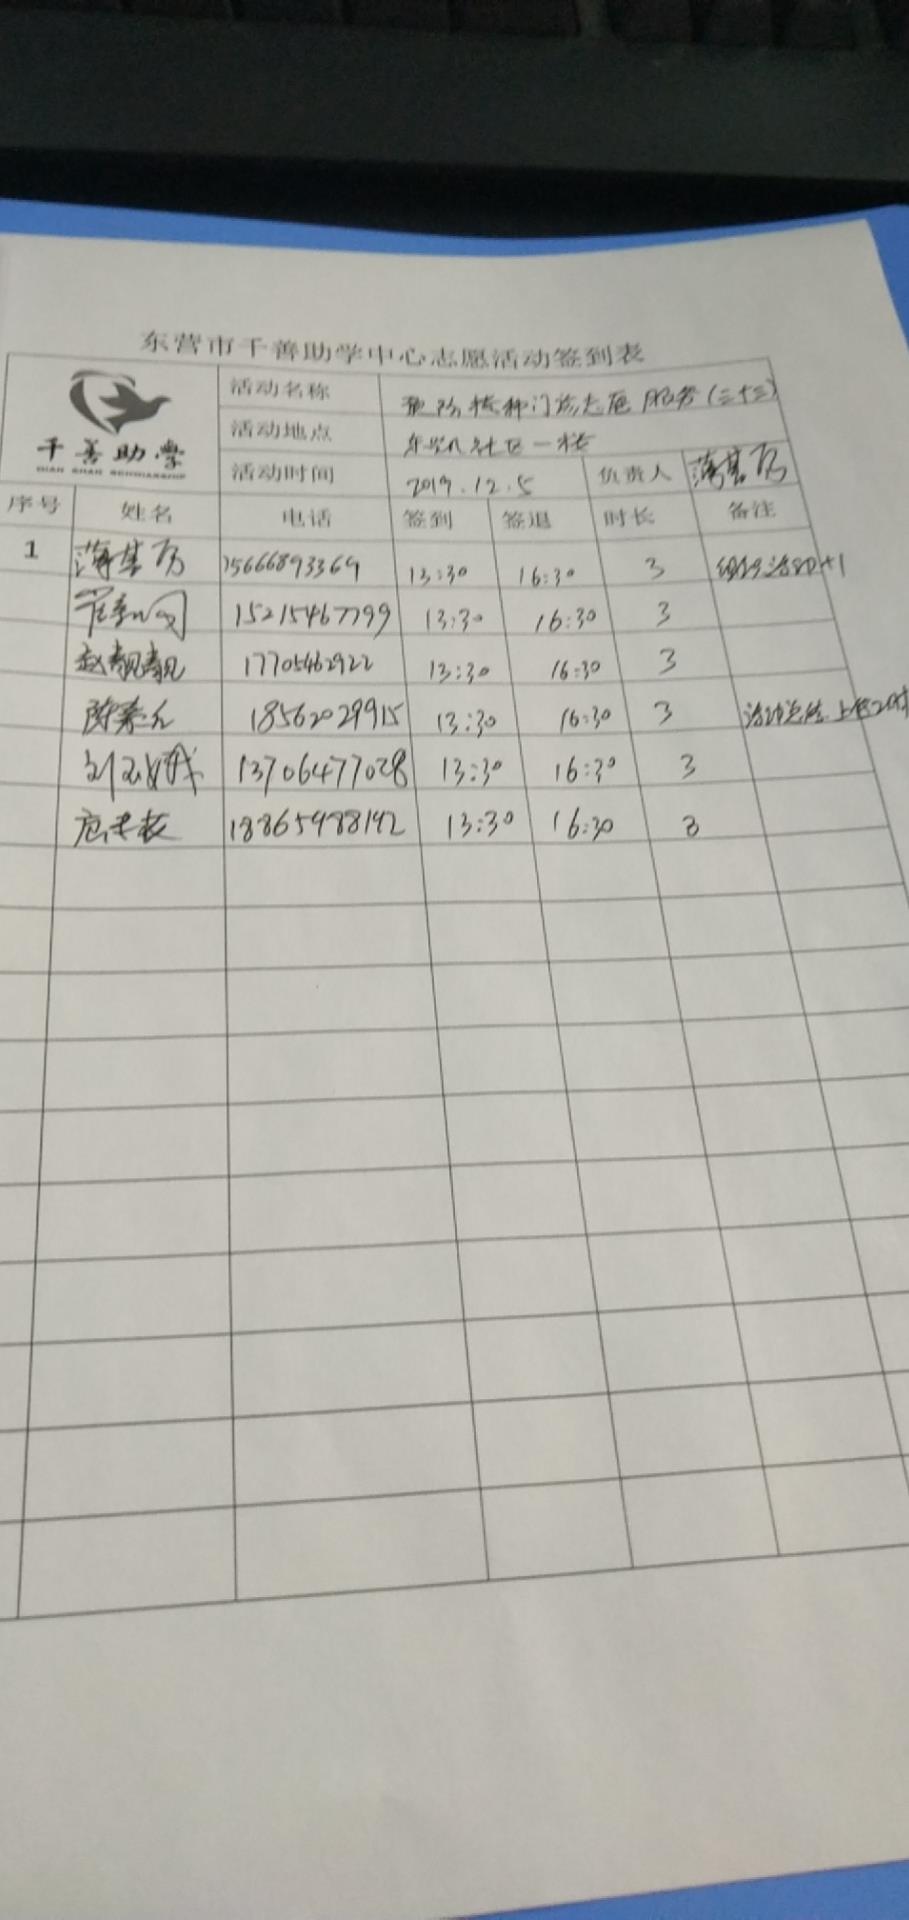 东营市千善助学中心志愿活动签到表
千善助学
QIAN SHAN SCHOLARSHIP
活动名称 预防接种门诊志愿服务(三十三)
活动地点 社区一楼
活动时间 2019.12.5 负责人
序号 姓名 电话 签到 签退 时长 备注
1 15666893369 13:30 16:30 3
15215467799 13:30 16:30 3
赵靓靓 17705462922 13:30 16:30 3
陈素 18562029915 13:30 16:30 3
刘 13706477028 13:30 16:30 3
18865988142 13:30 16:30 3